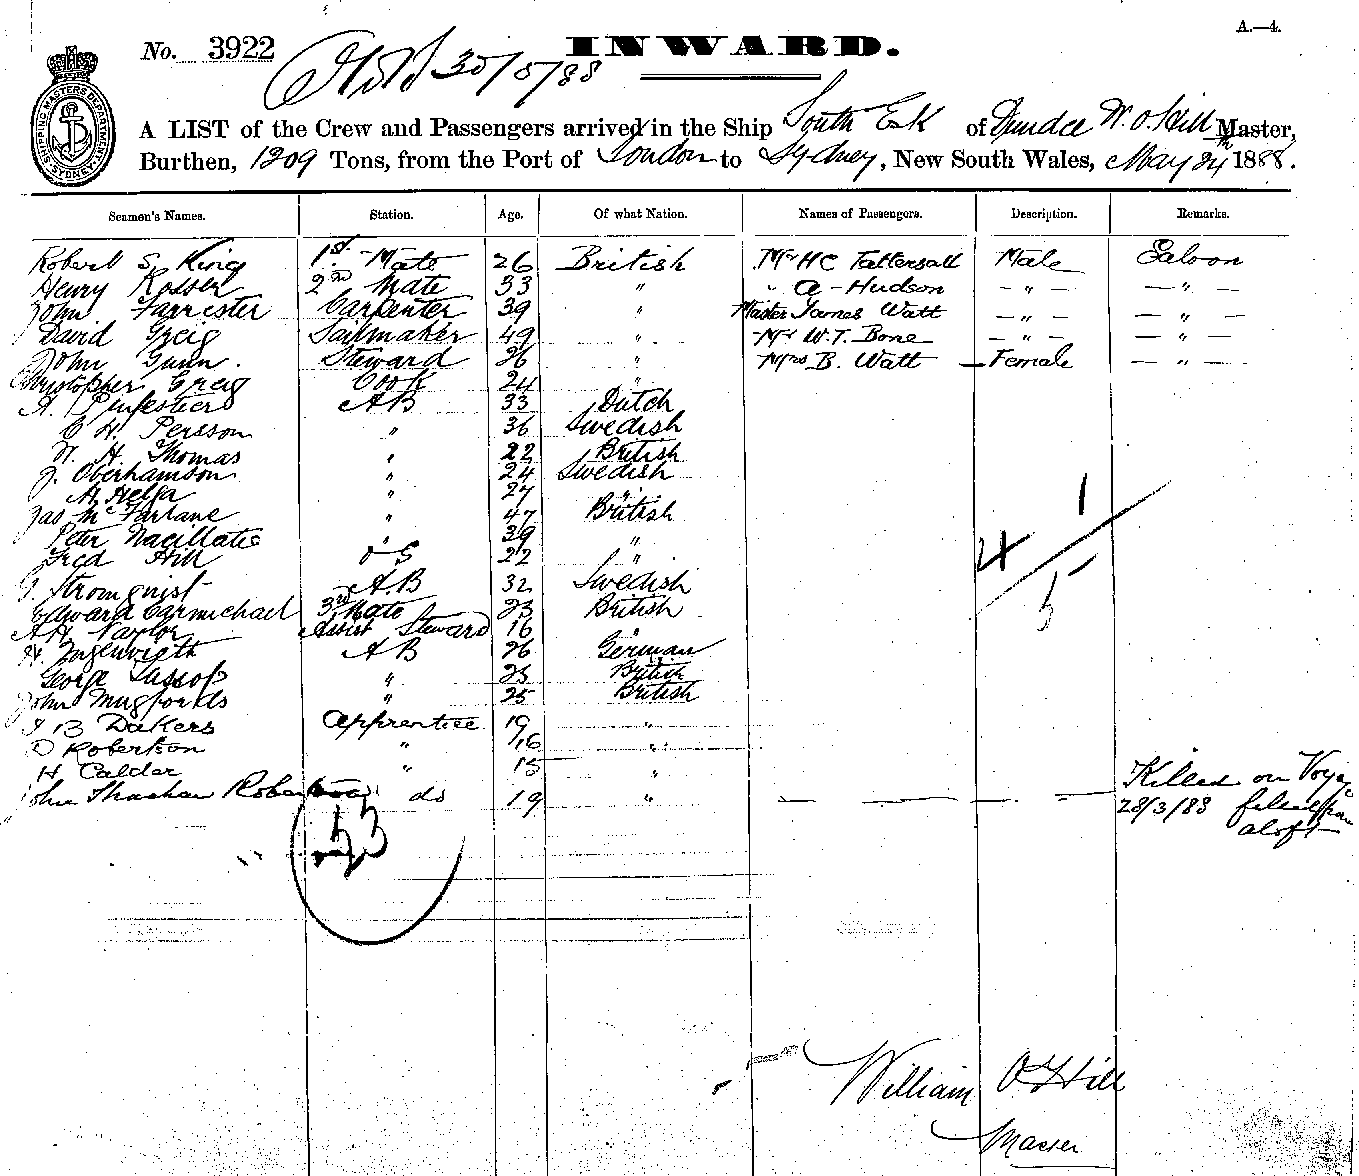 A.—4.
No. 3922
30/5/88
INWARD.
SHIPPING MASTERS DEPARTMENT SYDNEY
A LIST of the Crew and Passengers arrived in the Ship South Esk of Dundee W. O. Hill Master,
Burthen, 1209 Tons, from the Port of London to Sydney, New South Wales, May 24th 1888.
Seamen's Names. Station. Age. Of what Nation. Names of Passengers. Description. Remarks.
Robert S. King 1st Mate 26 British Mr H C Tattersall Male Saloon
Henry Rosser 2nd Mate 33 " " A - Hudson - " - - " -
John Farrester Carpenter 39 " Master James Watt - " - - " -
David Greig Sailmaker 49 " Mr W. T. Bone - " - - " -
John Gunn. Steward 26 " Mrs B. Watt Female - " -
Christopher Greig Cook 24 "
A. AB 33 Dutch
C H. Persson " 36 Swedish
W. H. Thomas " 22 British
J. Oberhamson " 24 Swedish
A. Helga " 27 "
Jas McFarlane " 47 British
Peter " 39 "
Fred Hill OS 22 "
Stromquist A.B 32 Swedish
Edward Carmichael 3rd Mate 23 British
A H. Naylor Assist Steward 16 "
H. AB 26 German
George " 23 British
John Mugfords " 25 British
J B Dakers Apprentice 19 "
D Robertson " 16 "
H Calder " 15 "
John do 19 " Killed on Voyage
28/3/88
aloft
4 1/5
23
William O Hill
Master